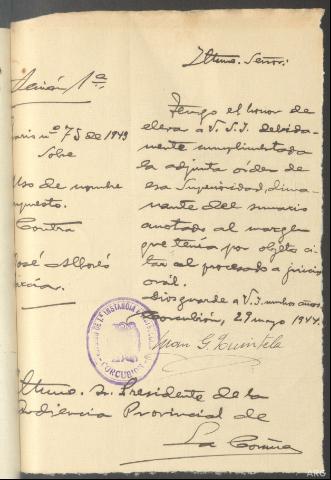 Iltmo. Señor:
Sección 1ª
Sumario nº 75 de 1943
Sobre
Uso de nombre
supuesto.
Contra
José Alborés
García.
Tengo el honor de
elevar a V.S.I. debida-
mente cumplimentada
la adjunta órden de
esa Superioridad, dima-
nante del sumario
anotado al margen
que tenia por objeto ci-
tar al procesado a juicio
oral.
Dios guarde a V.I. muchos años.
Corcubión, 29 mayo 1944.
Juan G. Quintela
CORCUBION
Iltmo. Sr. Presidente de la
Audiencia Provincial de
La Coruña
ARG